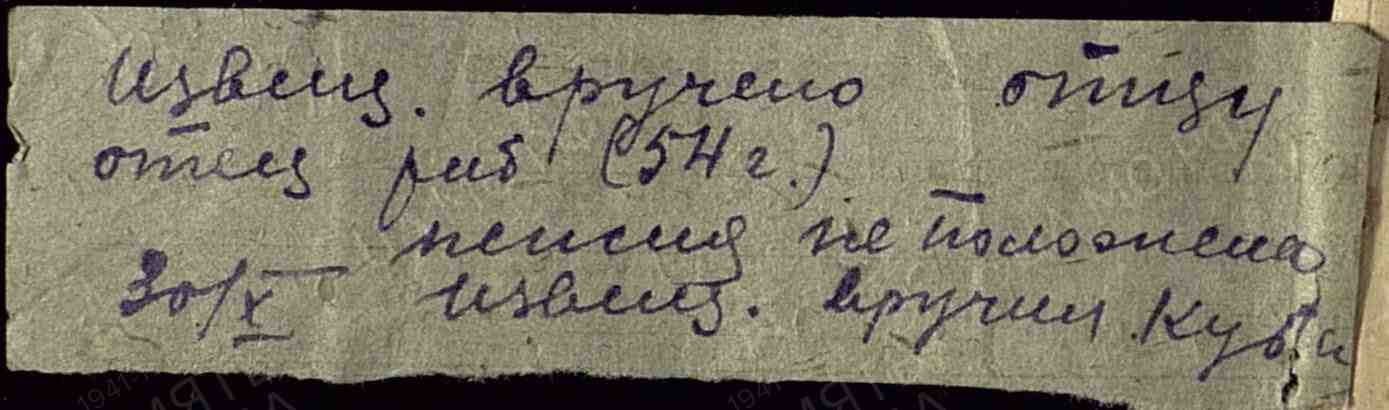 Извещ. вручено отцу
отец раб (54 г.)
пенсия не положена
30/X извещ. вручил